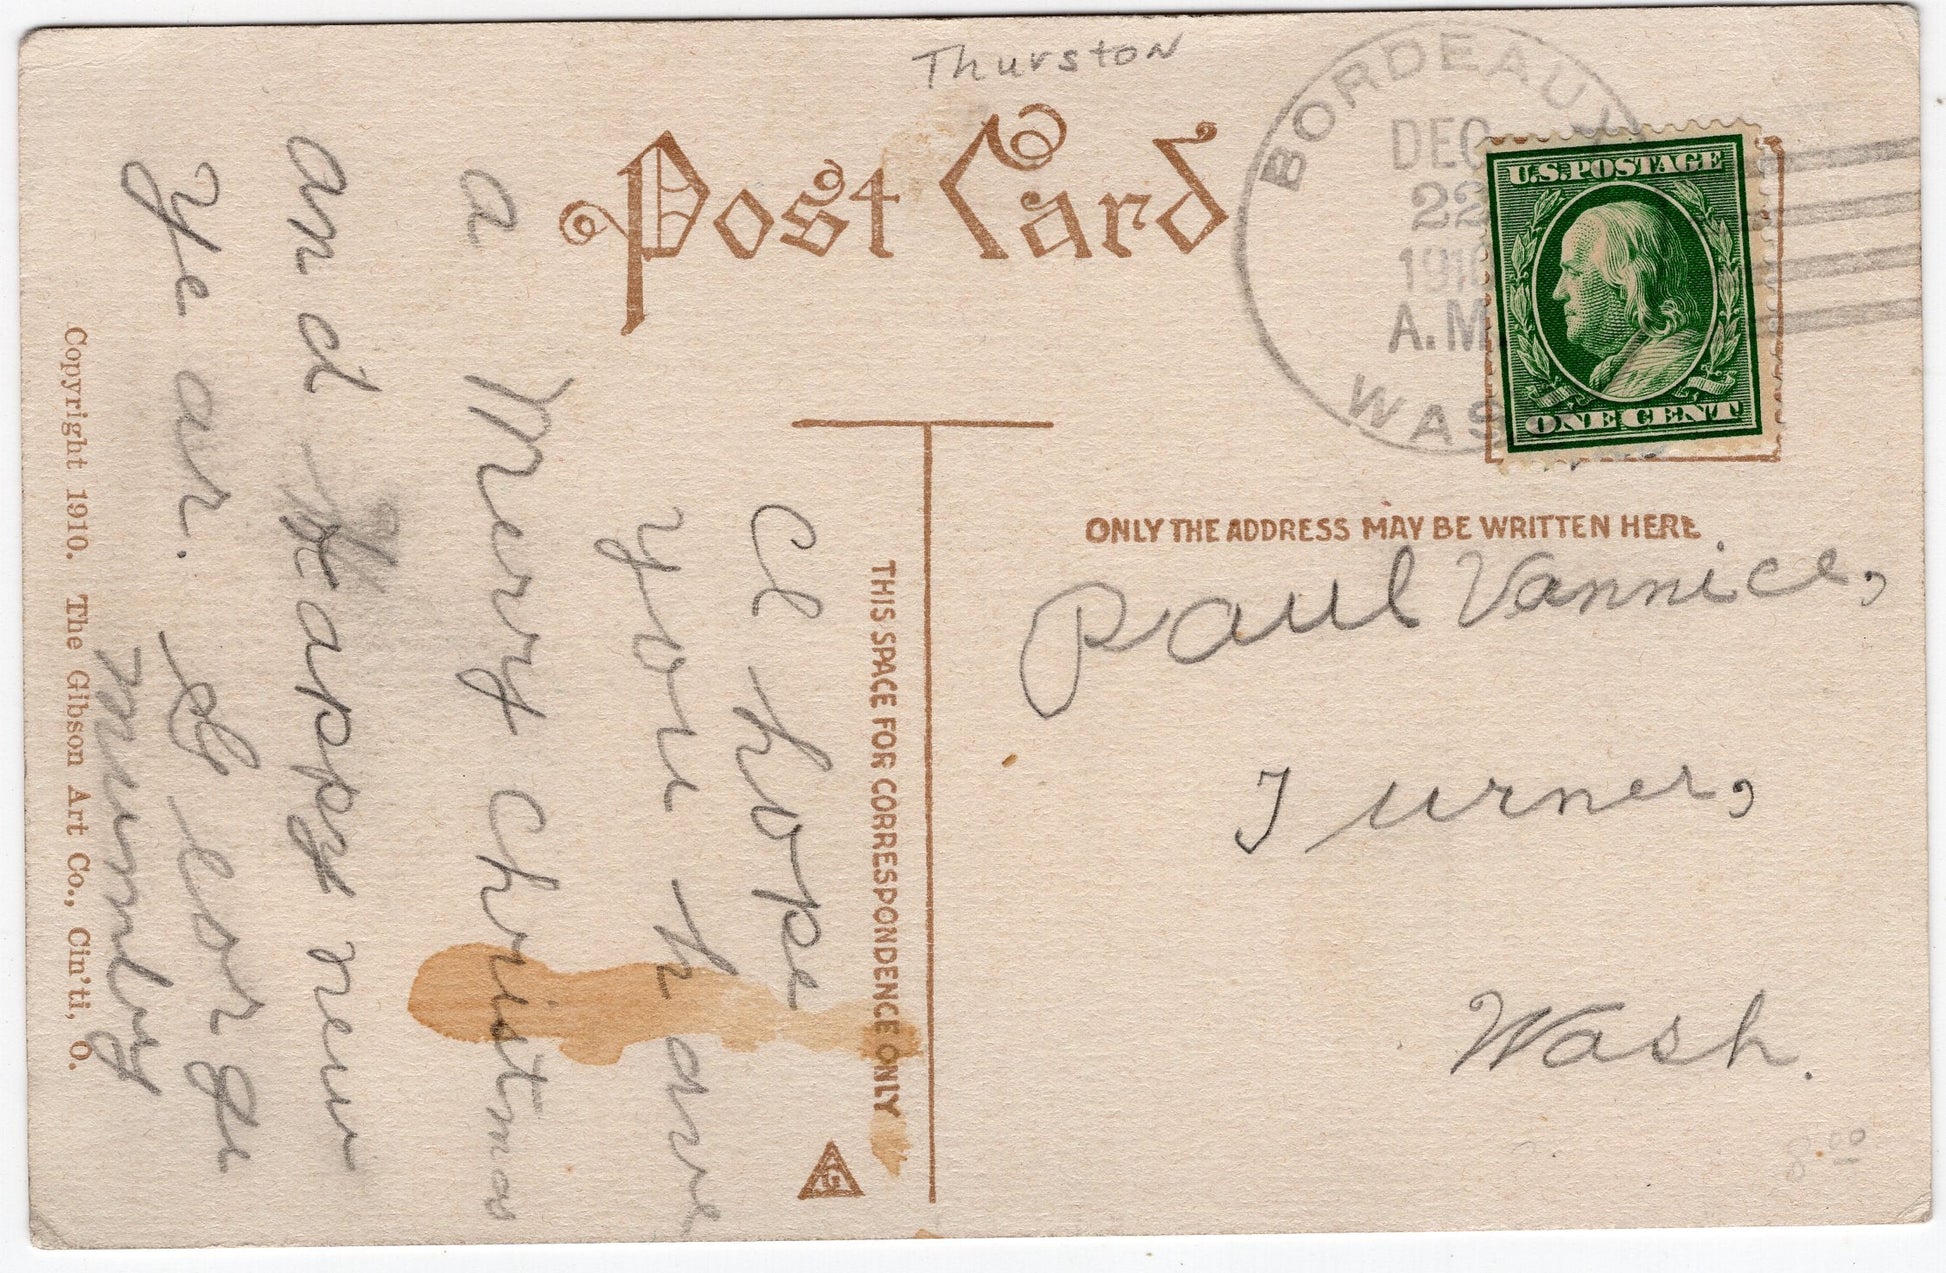 Thurston
Post Card
BORDEAUX
DEC
22
1910
A.M.
WASH
U.S. POSTAGE
ONE CENT
THIS SPACE FOR CORRESPONDENCE ONLY
ONLY THE ADDRESS MAY BE WRITTEN HERE
I hope
you have
a Merry Christmas
and Happy new
Ye ar. George
Mumby
Paul Vannice,
Turner,
Wash.
8.00
Copyright 1910. The Gibson Art Co., Cin'ti, O.